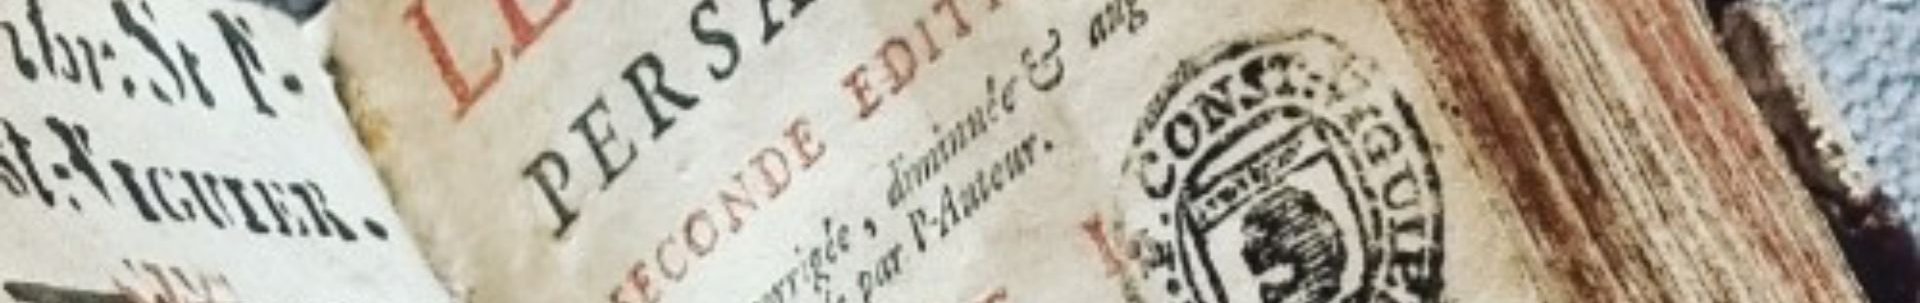 St P.
St. VIGUIER.
LE
PERSA
SECONDE EDITI
corrigée, diminuée & aug
par l'Auteur.
I.
CONST. VIGUIER